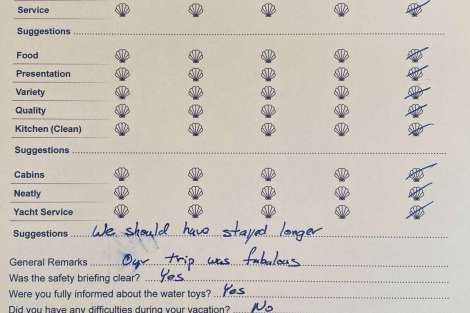 Service
Suggestions
Food
Presentation
Variety
Quality
Kitchen (Clean)
Suggestions
Cabins
Neatly
Yacht Service
Suggestions We should have stayed longer
General Remarks Our trip was fabulous
Was the safety briefing clear? Yes
Were you fully informed about the water toys? Yes
Did you have any difficulties during your vacation? No